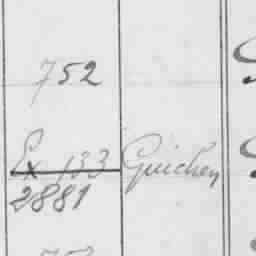 752
Ex 133 Guichen
2881